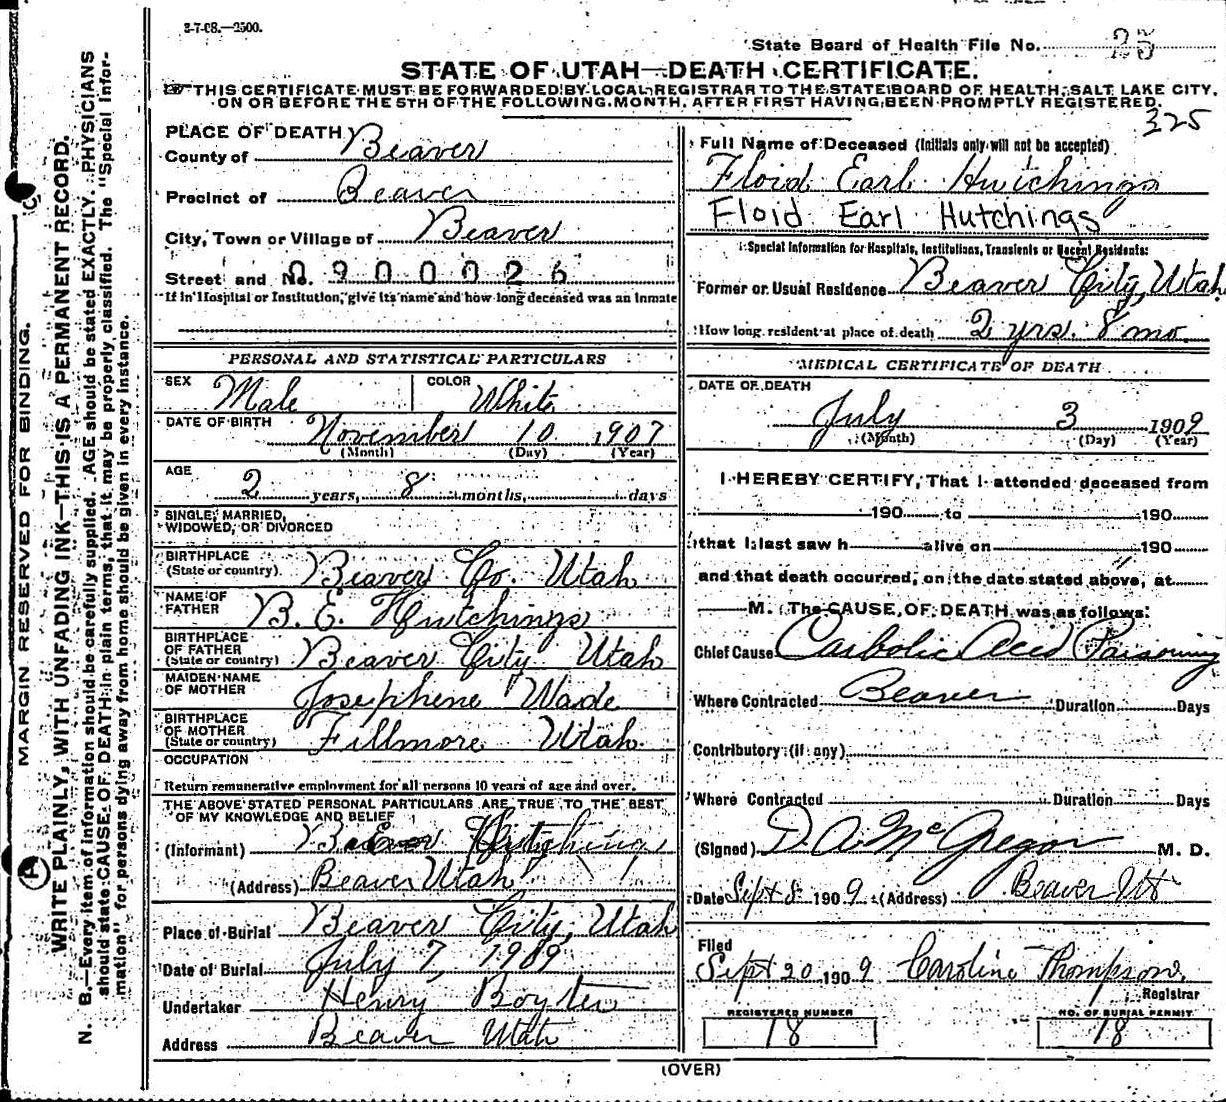 3-7-08.—2500.
State Board of Health File No. 25
STATE OF UTAH—DEATH CERTIFICATE.
THIS CERTIFICATE MUST BE FORWARDED BY LOCAL REGISTRAR TO THE STATE BOARD OF HEALTH, SALT LAKE CITY,
ON OR BEFORE THE 5TH OF THE FOLLOWING MONTH, AFTER FIRST HAVING BEEN PROMPTLY REGISTERED.
325
MARGIN RESERVED FOR BINDING.
WRITE PLAINLY, WITH UNFADING INK—THIS IS A PERMANENT RECORD.
N. B.—Every item of information should be carefully supplied. AGE should be stated EXACTLY. PHYSICIANS
should state CAUSE OF DEATH in plain terms, that it may be properly classified. The "Special Infor-
mation" for persons dying away from home should be given in every instance.
A
PLACE OF DEATH
County of Beaver
Precinct of Beaver
City, Town or Village of Beaver
Street and No. 0900026
If in Hospital or Institution, give its name and how long deceased was an inmate
PERSONAL AND STATISTICAL PARTICULARS
SEX Male COLOR White
DATE OF BIRTH November 10 1907
(Month) (Day) (Year)
AGE
2 years, 8 months, days
SINGLE, MARRIED,
WIDOWED, OR DIVORCED
BIRTHPLACE
(State or country) Beaver Co. Utah
NAME OF
FATHER B. E. Hutchings
BIRTHPLACE
OF FATHER
(State or country) Beaver City Utah
MAIDEN NAME
OF MOTHER Josephene Wade
BIRTHPLACE
OF MOTHER
(State or country) Fillmore Utah.
OCCUPATION
Return remunerative employment for all persons 10 years of age and over.
THE ABOVE STATED PERSONAL PARTICULARS ARE TRUE TO THE BEST
OF MY KNOWLEDGE AND BELIEF
(Informant) Hutchings
(Address) Beaver Utah
Place of Burial Beaver City, Utah
Date of Burial July 7, 1909
Undertaker Henry Boyter
Address Beaver Utah
Full Name of Deceased (Initials only will not be accepted)
Floid Earl Hutchings
Floid Earl Hutchings
Special Information for Hospitals, Institutions, Transients or Recent Residents:
Former or Usual Residence Beaver City, Utah
How long resident at place of death 2 yrs. 8 mo.
MEDICAL CERTIFICATE OF DEATH
DATE OF DEATH
July 3 1909
(Month) (Day) (Year)
I HEREBY CERTIFY, That I attended deceased from
190 to 190
that I last saw h alive on 190
and that death occurred, on the date stated above, at
M. The CAUSE OF DEATH was as follows:
Chief Cause Carbolic Acid Poisoning
Where Contracted Beaver Duration Days
Contributory (if any)
Where Contracted Duration Days
(Signed) D A McGregor M. D.
Date Sept 8 1909 (Address) Beaver Ut
Filed
Sept 20 1909 Caroline Thompson,
Registrar
REGISTERED NUMBER NO. OF BURIAL PERMIT
18 18
(OVER)